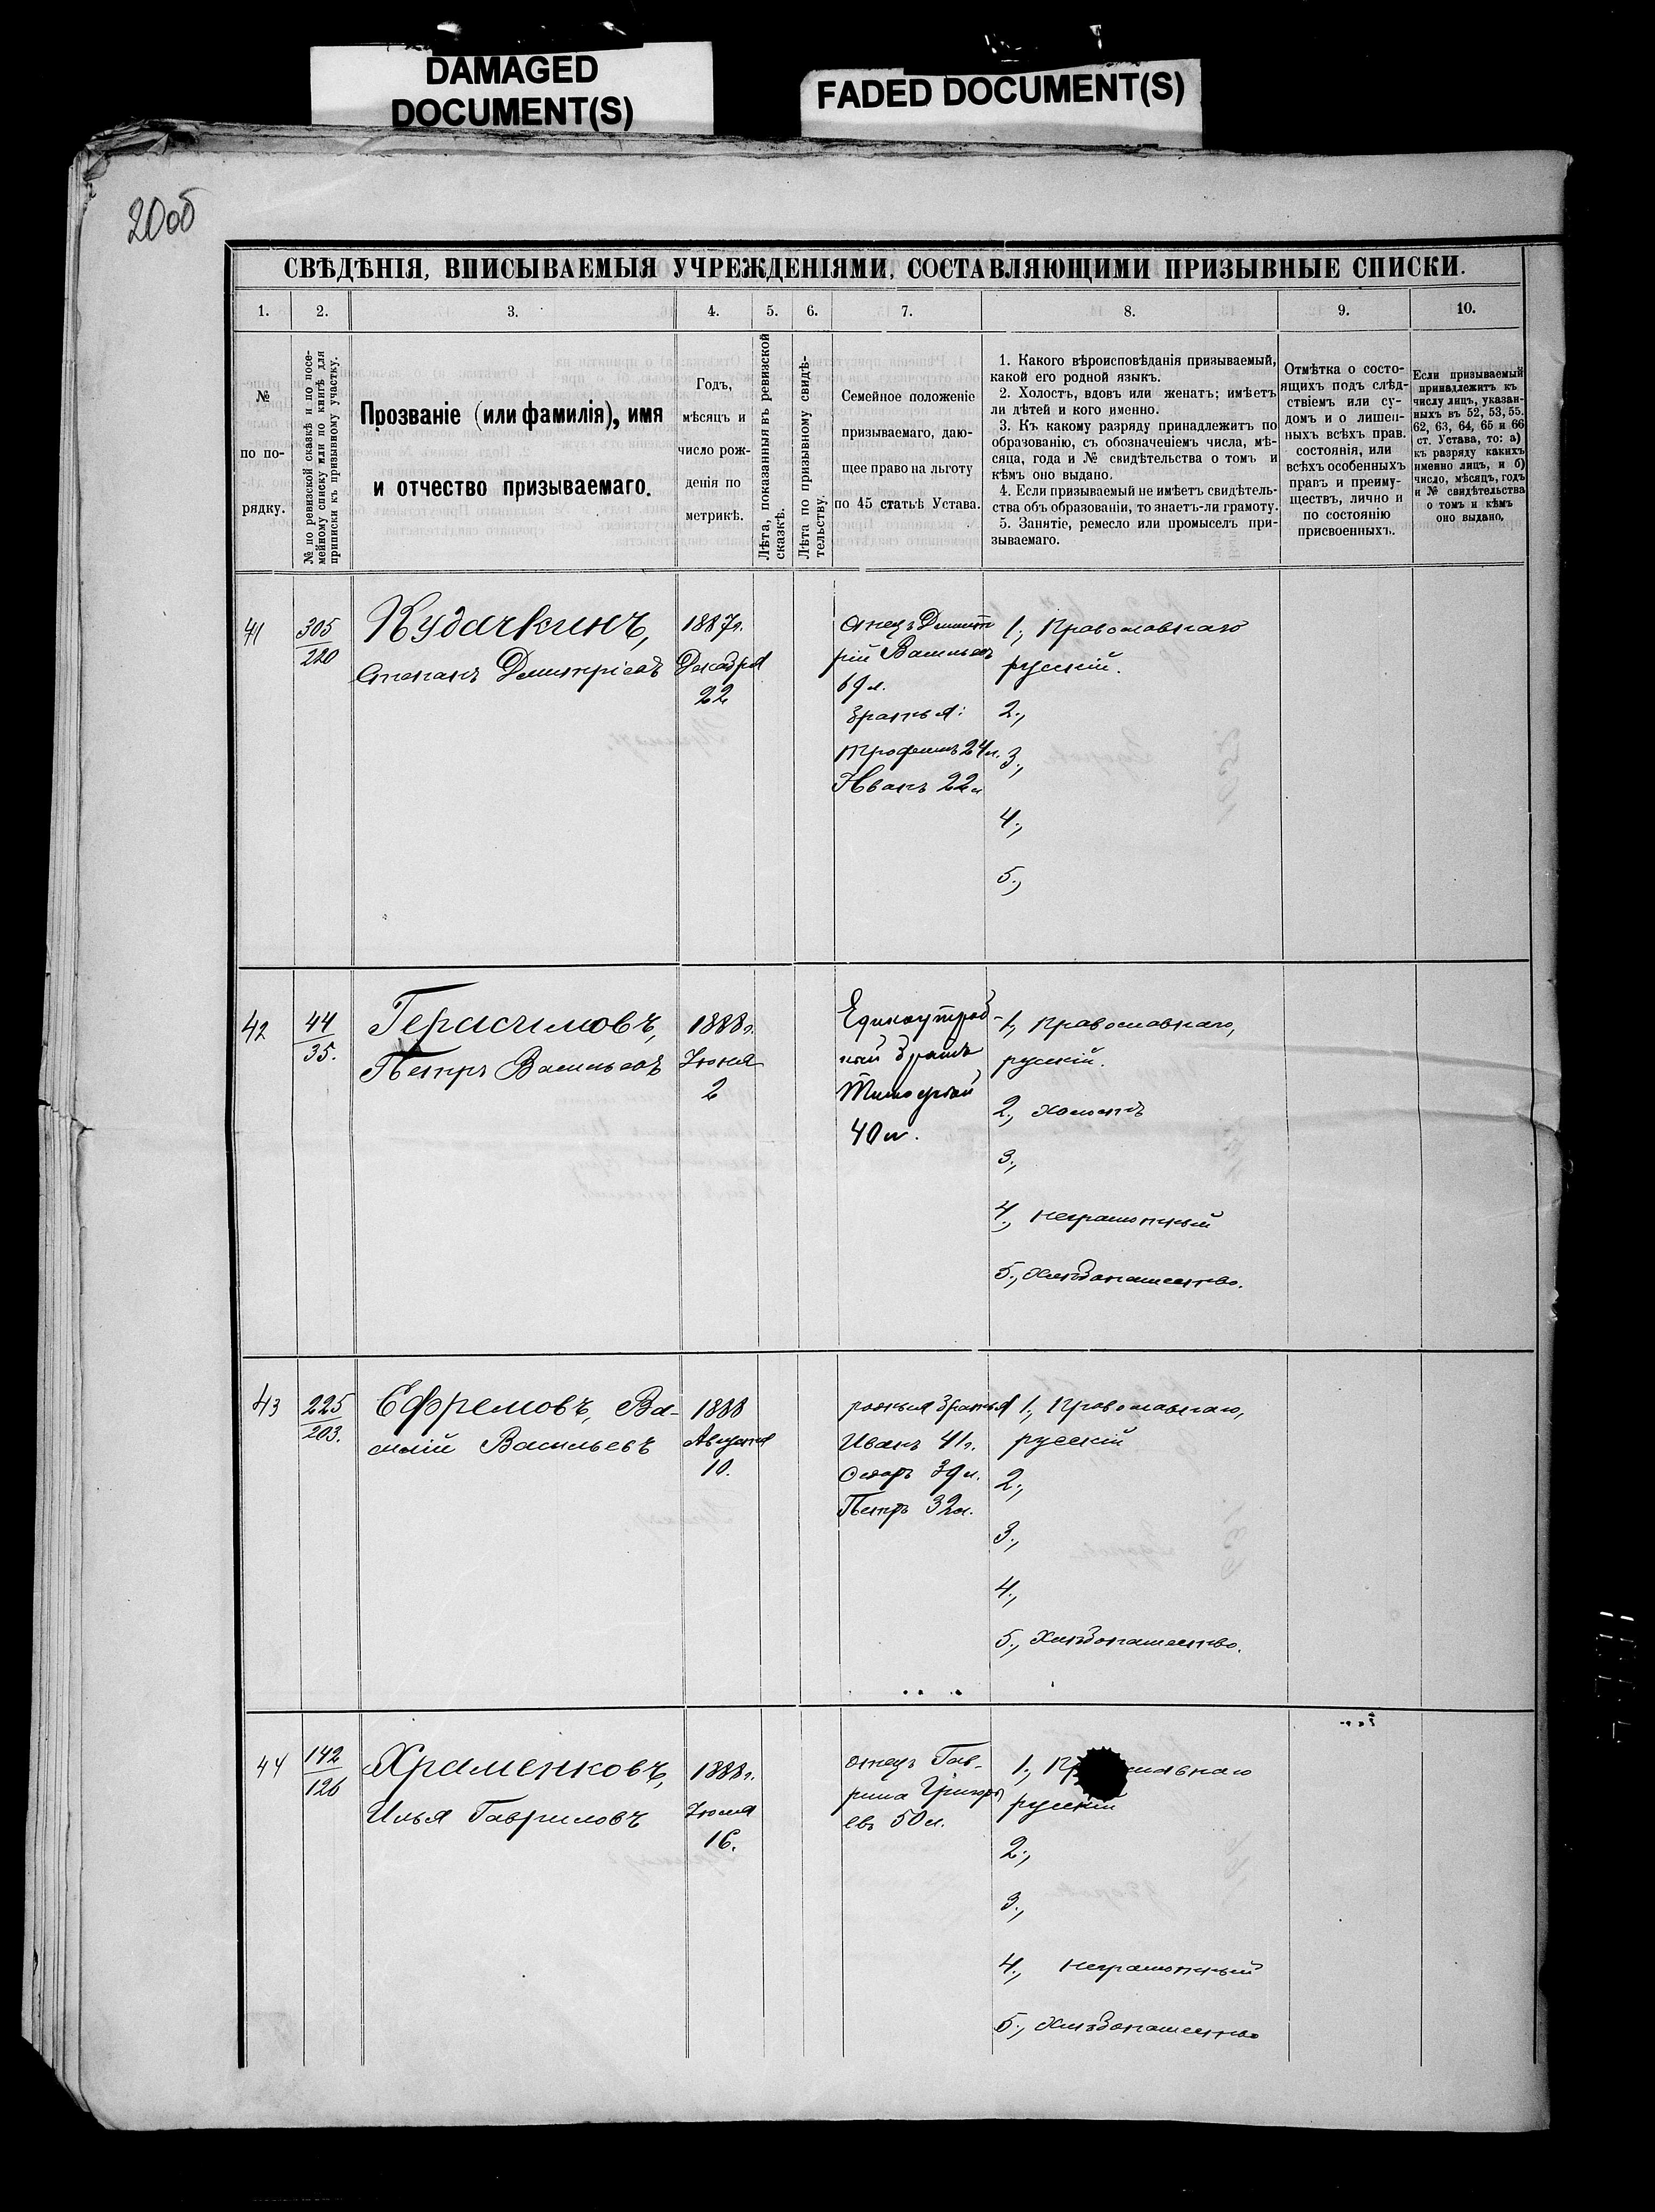 DAMAGED
DOCUMENT(S)
FADED DOCUMENT(S)
20об
СВѢДѢНІЯ, ВПИСЫВАЕМЫЯ УЧРЕЖДЕНІЯМИ, СОСТАВЛЯЮЩИМИ ПРИЗЫВНЫЕ СПИСКИ.
1.
2.
3.
4.
5.
6.
7.
8.
9.
10.
№
по по-
рядку.
№ по ревизской сказкѣ и по посе-
мейному списку или по книгѣ для
приписки къ призывному участку.
Прозваніе (или фамилія), имя
и отчество призываемаго.
Годъ,
мѣсяцъ и
число рож-
денія по
метрикѣ.
Лѣта, показанныя въ ревизской
сказкѣ.
Лѣта по призывному свидѣ-
тельству.
Семейное положеніе
призываемаго, даю-
щее право на льготу
по 45 статьѣ Устава.
1. Какого вѣроисповѣданія призываемый,
какой его родной языкъ.
2. Холостъ, вдовъ или женатъ; имѣетъ
ли дѣтей и кого именно.
3. Къ какому разряду принадлежитъ по
образованію, съ обозначеніемъ числа, мѣ-
сяца, года и № свидѣтельства о томъ и
кѣмъ оно выдано.
4. Если призываемый не имѣетъ свидѣтель-
ства объ образованіи, то знаетъ-ли грамоту.
5. Занятіе, ремесло или промыселъ при-
зываемаго.
Отмѣтка о состо-
ящихъ подъ слѣд-
ствіемъ или су-
домъ и о лишен-
ныхъ всѣхъ прав.
состоянія, или
всѣхъ особенныхъ
правъ и преиму-
ществъ, лично и
по состоянію
присвоенныхъ.
Если призываемый
принадлежитъ къ
числу лицъ, указан-
ныхъ въ 52, 53, 55.
62, 63, 64, 65 и 66
ст. Устава, то: а)
къ разряду какихъ
именно лицъ, и б)
число, мѣсяцъ, годъ
и № свидѣтельства
о томъ и кѣмъ
оно выдано.
41
305
220
Кудачкинъ,
Степанъ Дмитріевъ
1887г.
Декабря
22
Отецъ Дмит
рій Васильевъ
69 л.
братья:
Трофимъ 24 л.
Иванъ 22 л
1., Православнаго
русскій.
2.,
3.,
4.,
5.,
42
44
35.
Герасимовъ,
Петръ Васильевъ
1888г.
Іюня
2
Единоутроб-
ный братъ
Тимофей
40 л.
1., Православнаго,
русскій.
2., Холостъ
3.,
4., неграмотный
5., Хлѣбопашество.
43
225
203.
Ефремовъ, Ва-
силій Васильевъ
1888
Августа
10.
родныя братья
Иванъ 41 г.
Федоръ 39 л.
Петръ 32 л.
1., Православнаго,
русскій
2.,
3.,
4.,
5., Хлѣбопашество.
44
142
126
Храменковъ,
Илья Гавриловъ
1888г.
Іюля
16.
отецъ Гав-
рила Григорь
евъ 50 л.
1., Пр славнаго
русскій
2.,
3.,
4., неграмотный
5., Хлѣбопашество